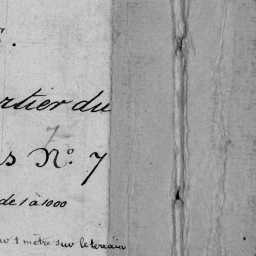 rtier du
7
s N° 7
de 1 à 1000
1 mètre sur le terrain